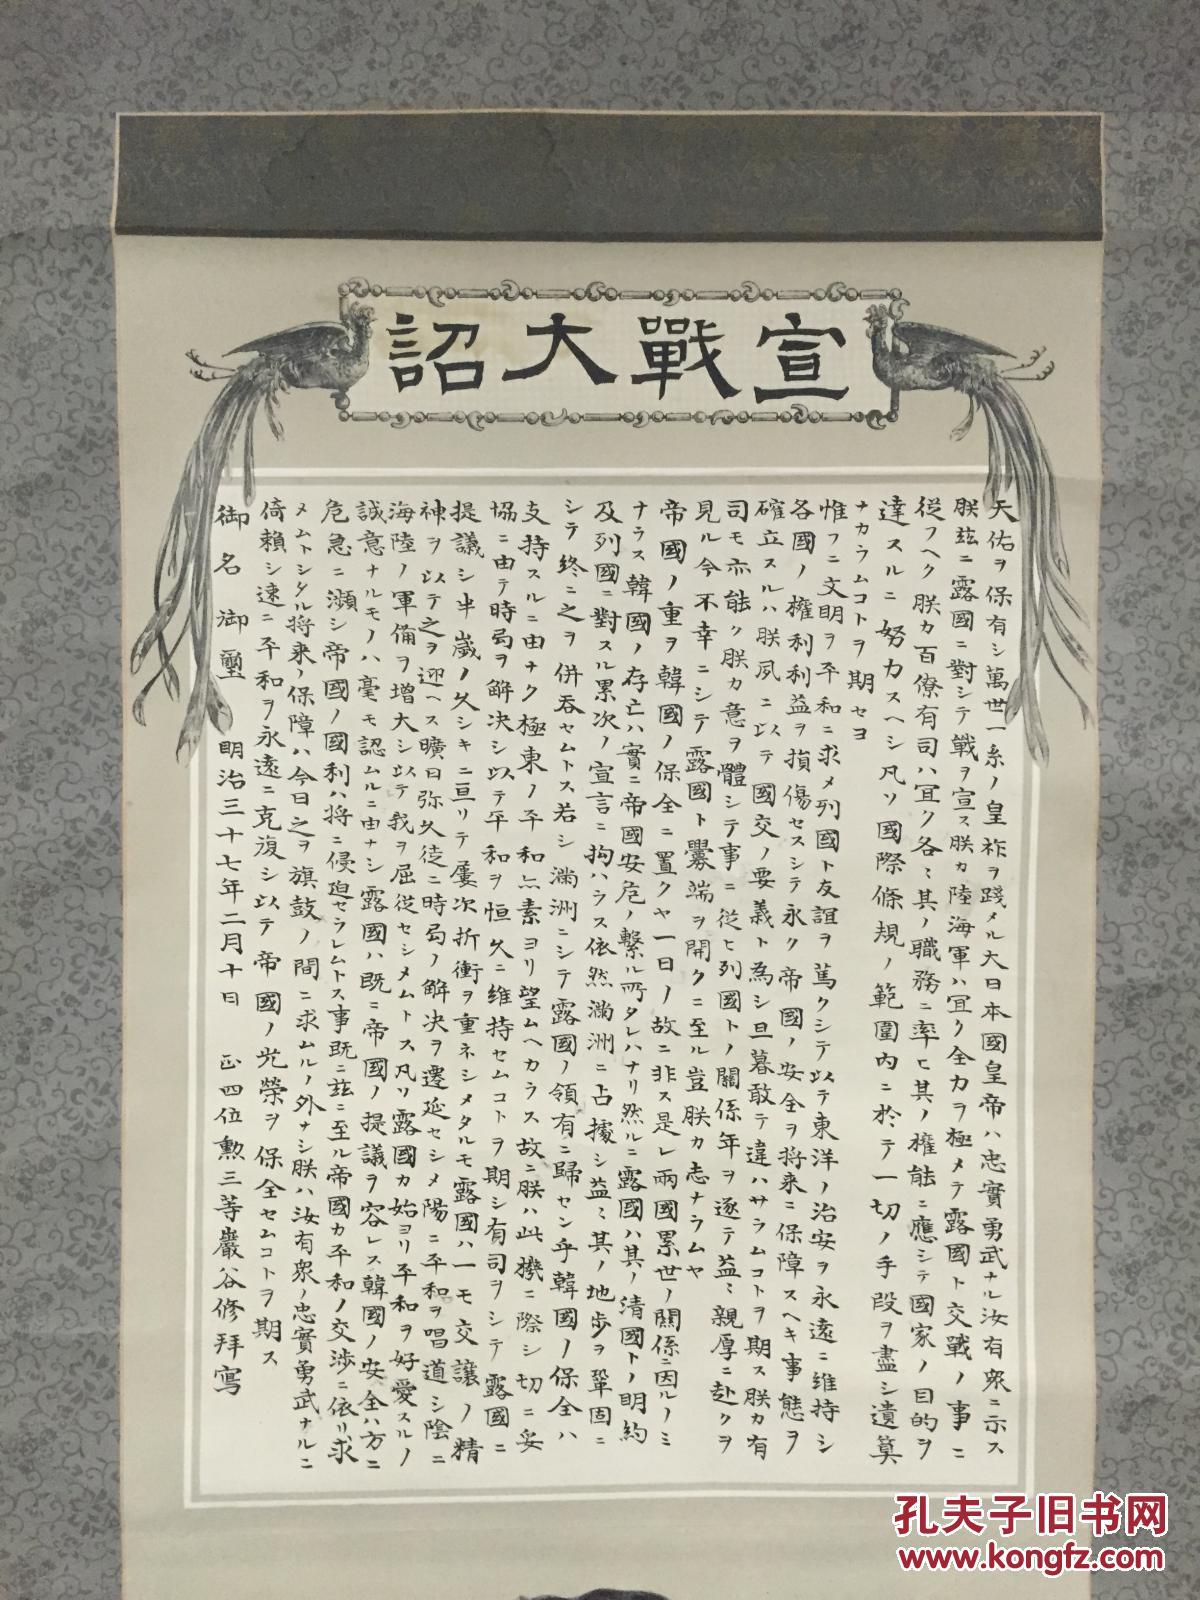 宣戰大詔
天佑ヲ保有シ萬世一系ノ皇祚ヲ踐メル大日本國皇帝ハ忠實勇武ナル汝有衆ニ示ス
朕茲ニ露國ニ對シテ戰ヲ宣ス朕カ陸海軍ハ宜ク全力ヲ極メテ露國ト交戰ノ事ニ
從フヘク朕カ百僚有司ハ宜ク各〻其ノ職務ニ率ヒ其ノ權能ニ應シテ國家ノ目的ヲ
達スルニ努力スヘシ凡ソ國際條規ノ範圍内ニ於テ一切ノ手段ヲ盡シ遺算
ナカラムコトヲ期セヨ
惟フニ文明ヲ平和ニ求メ列國ト友誼ヲ篤クシテ以テ東洋ノ治安ヲ永遠ニ維持シ
各國ノ權利利益ヲ損傷セスシテ永ク帝國ノ安全ヲ将来ニ保障スヘキ事態ヲ
確立スルハ朕夙ニ以テ國交ノ要義ト為シ旦暮敢テ違ハサラムコトヲ期ス朕カ有
司モ亦能ク朕カ意ヲ體シテ事ニ從ヒ列國トノ關係年ヲ逐テ益〻親厚ニ赴クヲ
見ル今不幸ニシテ露國ト釁端ヲ開クニ至ル豈朕カ志ナラムヤ
帝國ノ重ヲ韓國ノ保全ニ置クヤ一日ノ故ニ非ス是レ兩國累世ノ關係ニ因ルノミ
ナラス韓國ノ存亡ハ實ニ帝國安危ノ繋ル所タレハナリ然ルニ露國ハ其ノ清國トノ明約
及列國ニ對スル累次ノ宣言ニ拘ハラス依然満洲ニ占據シ益〻其ノ地歩ヲ鞏固ニ
シテ終ニ之ヲ併呑セムトス若シ満洲ニシテ露國ノ領有ニ歸セン乎韓國ノ保全ハ
支持スルニ由ナク極東ノ平和亦素ヨリ望ムヘカラス故ニ朕ハ此ノ機ニ際シ切ニ妥
協ニ由テ時局ヲ解决シ以テ平和ヲ恒久ニ維持セムコトヲ期シ有司ヲシテ露國ニ
提議シ半歳ノ久シキニ亘リテ屢次折衝ヲ重ネシメタルモ露國ハ一モ交讓ノ精
神ヲ以テ之ヲ迎ヘス曠日弥久徒ニ時局ノ解决ヲ遷延セシメ陽ニ平和ヲ唱道シ陰ニ
海陸ノ軍備ヲ增大シ以テ我ヲ屈從セシメムトス凡ソ露國カ始ヨリ平和ヲ好愛スルノ
誠意ナルモノハ毫モ認ムルニ由ナシ露國ハ既ニ帝國ノ提議ヲ容レス韓國ノ安全ハ方ニ
危急ニ瀕シ帝國ノ國利ハ将ニ侵迫セラレムトス事既ニ茲ニ至ル帝國カ平和ノ交渉ニ依リ求
メムトシタル将来ノ保障ハ今日之ヲ旗鼓ノ間ニ求ムルノ外ナシ朕ハ汝有衆ノ忠實勇武ナルニ
倚賴シ速ニ平和ヲ永遠ニ克復シ以テ帝國ノ光榮ヲ保全セムコトヲ期ス
御名御璽 明治三十七年二月十日 正四位勲三等巖谷修拜寫
孔夫子旧书网
www.kongfz.com